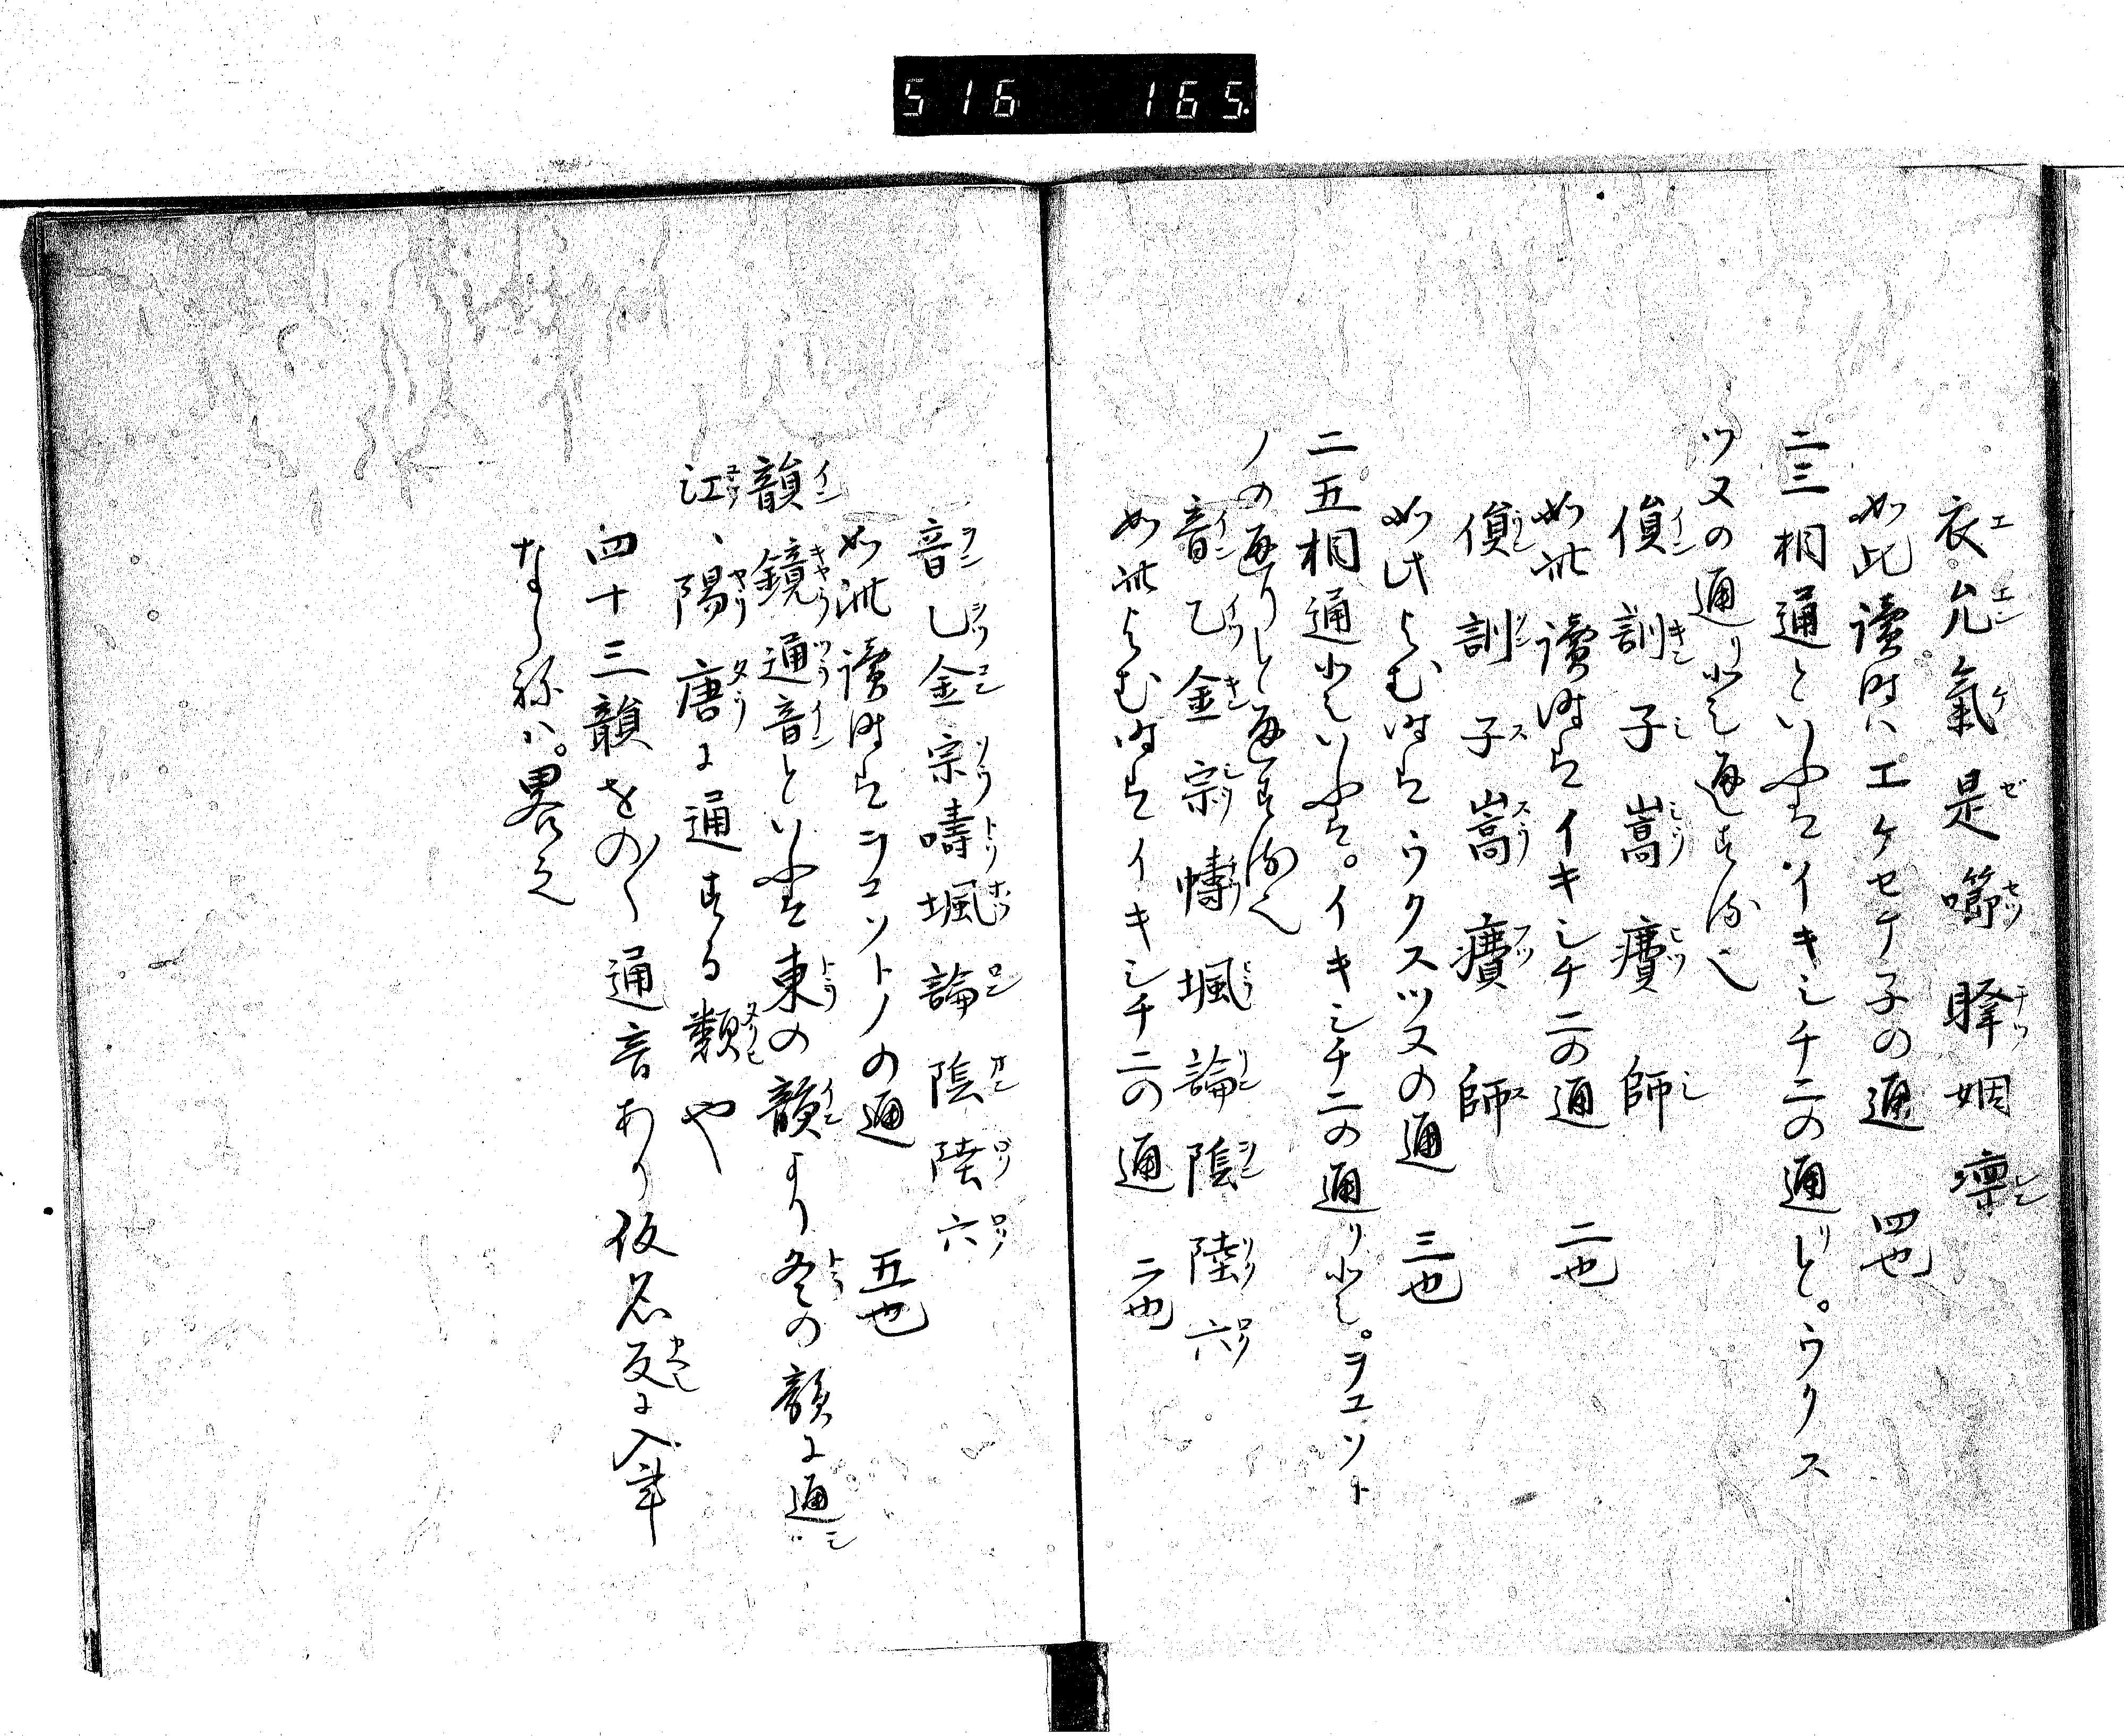 516 165.
衣允氣是 姻
如此讀時ハエケセテ子の通 四也
二三相通といふはイキシチニの通りと。ウクス
ツヌの通りと通する也
訓子嵩 師
如此讀時はイキシチニの通 二也
訓子嵩 師
如此よむ時はウクスツヌの通 三也
二五相通といふは。イキシチニの通りと。ヲコソト
ノの通りと通する也
音乙金宗幬堸論陰陸六
如此よむ時はイキシチニの通 二也
音乙金宗嚋堸論陰陸六
如此讀時はヲコソトノの通 五也
韻鏡通音といふは東の韻より冬の韻に通シ
江、陽唐に通する類や
四十三韻をの〱通音あり仮名反に入筆
なら ハ。畧之